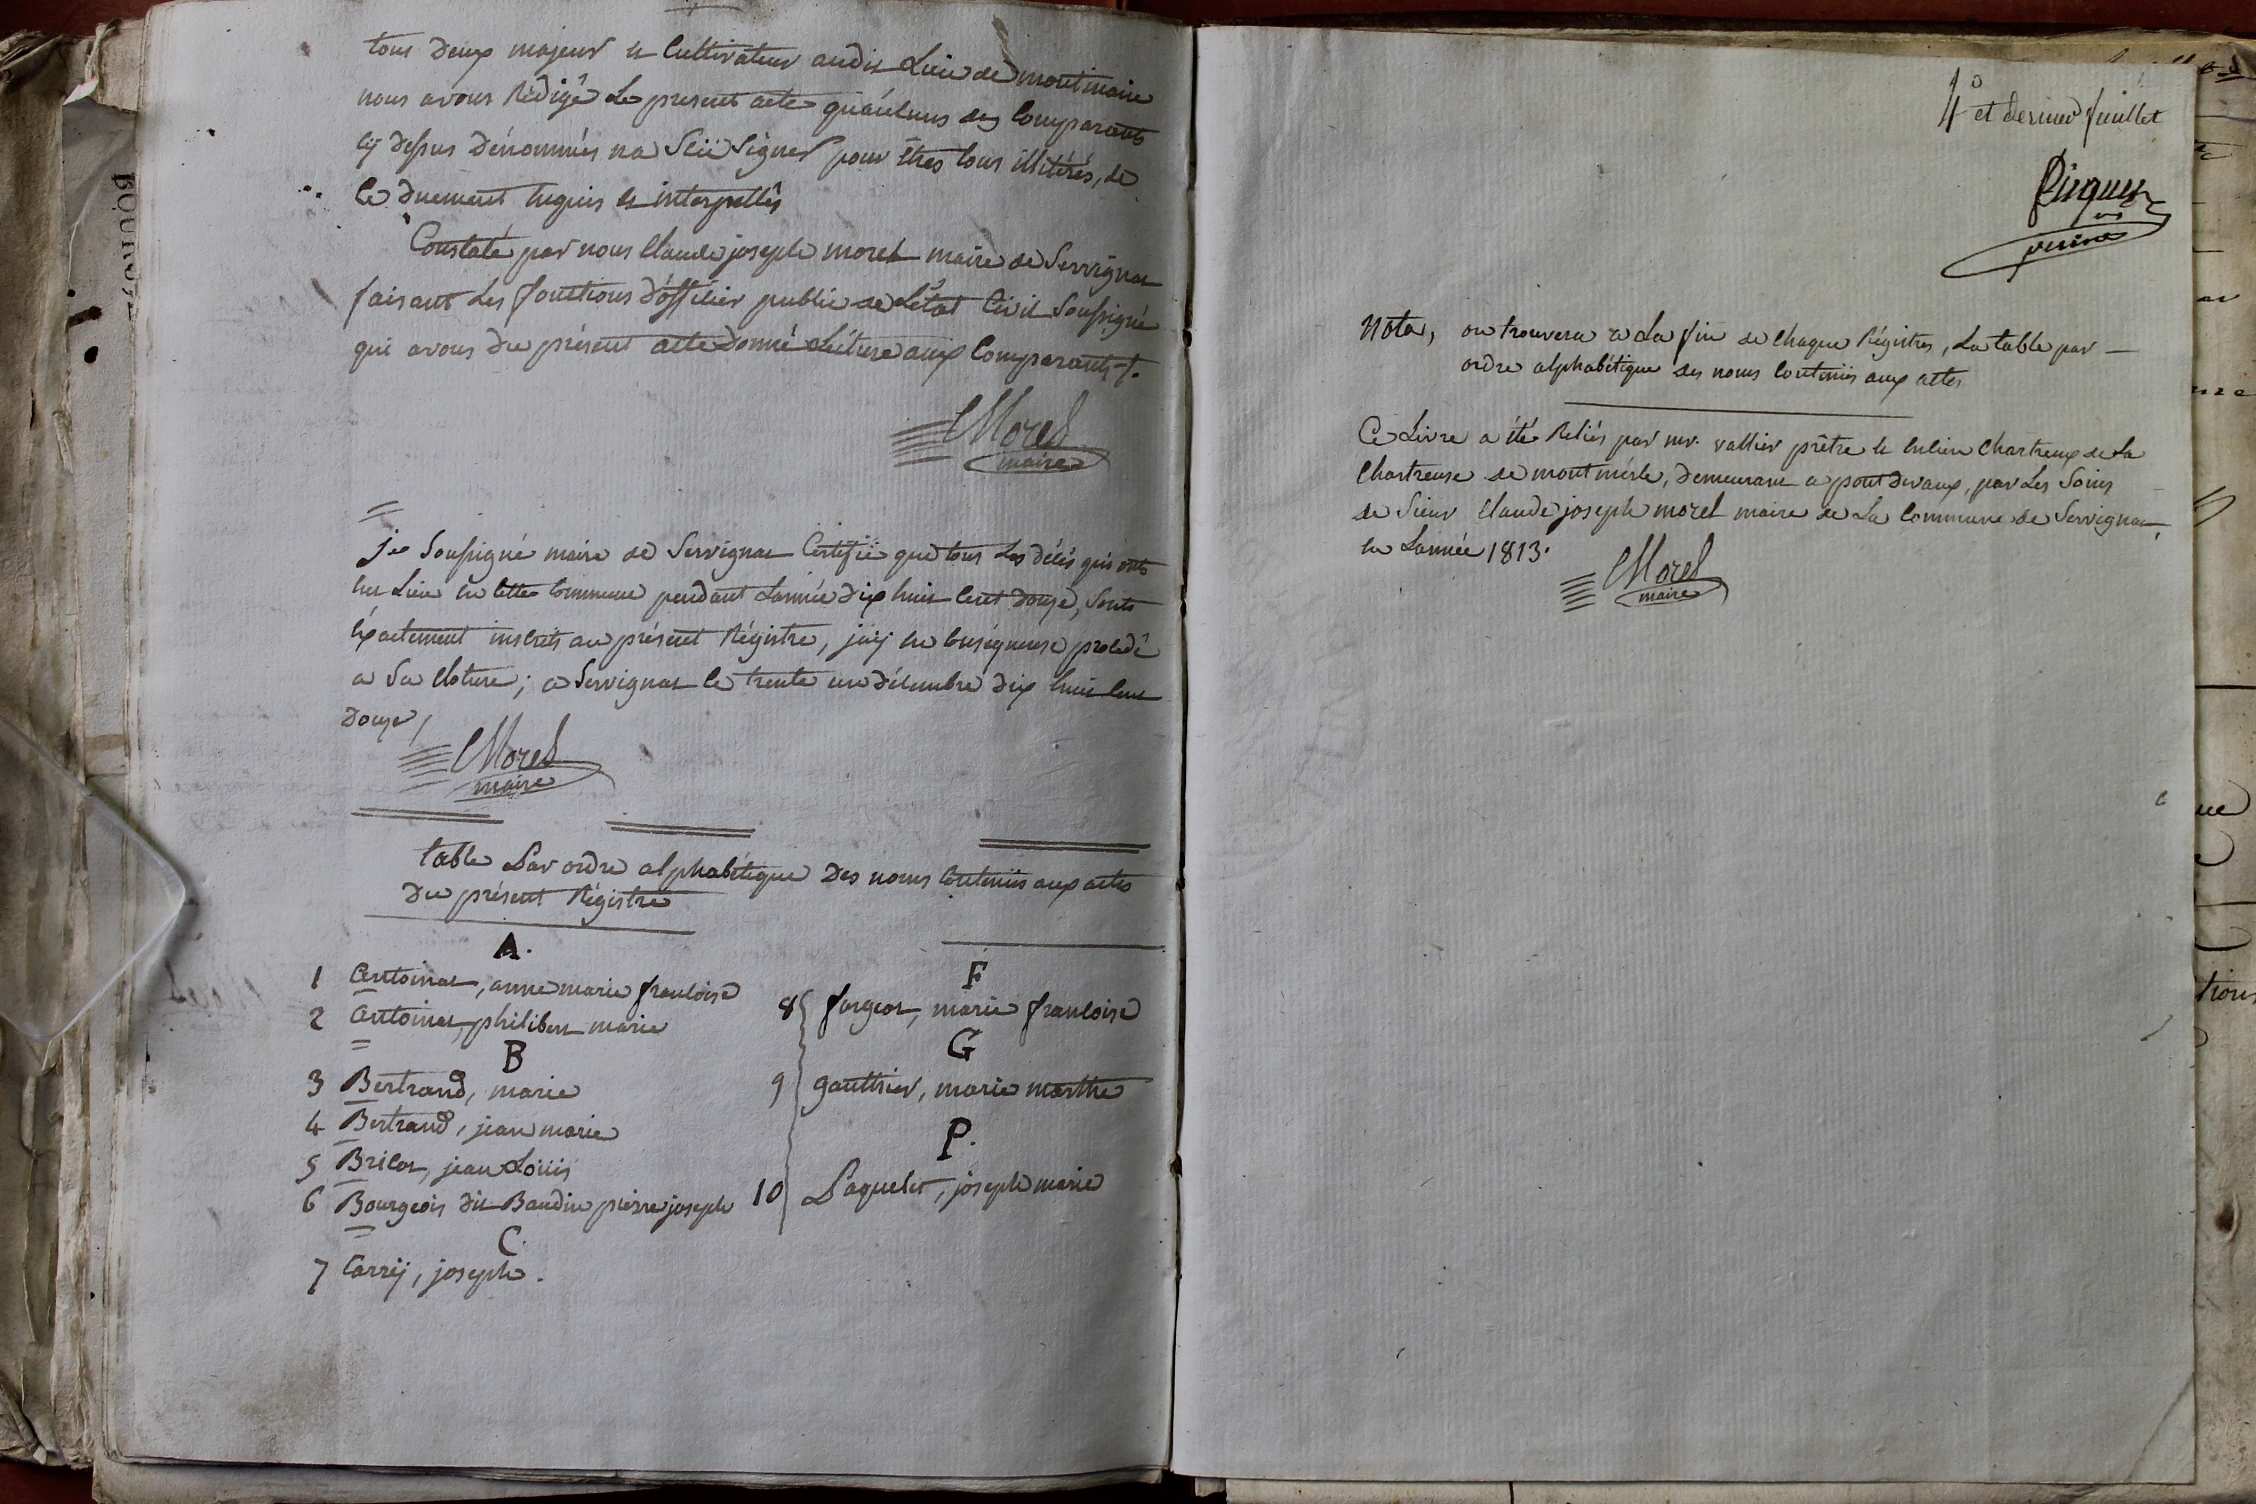 tous deux majeur et Cultivateur audit Lieu de montinaire
nous avons Rédigé Le present acte qu'aucuns des Comparants
cy dessus dénommés na Sçu Signer pour êtres tous illitérés, de
ce duement requis et interpellés
Constaté par nous Claude joseph morel maire de Servignat
faisant Les fonctions d'officier public de L'état Civil Soussigné
qui avons du présent acte donné Lécture aux Comparants
CMorel
maire
je Soussigné maire de Servignat Certifie que tous Les décès qui onts
eu Lieu en cette Commune pendant Lannée dix huit Cent douze, Sonts
exactement inscrits au présent Régistre, jaÿ en Conséquence procédé
a Sa cloture ; a Servignat le trente un décembre dix huit Cent
douze /
CMorel
maire
table Par ordre alphabétique Des noms Contenus aux actes
Du présent Régistre
A.
1 Antoinat, anne marie francoise
2 Antoinat, philibert marie
B
3 Bertrand, marie
4 Bertrand, jean marie
5 Bricot, jean Loüis
6 Bourgeois dit Baudin pierre joseph
C.
7 Carrij, joseph.
F
8 forgeot, marie francoise
G
9 gauthier, marie marthe
P.
10 Paquelet, joseph marie
4e et dernier feuillet
Nota, on trouvera a La fin de chaque Régistres, La table par
ordre alphabétique des noms Contenus aux actes
Ce Livre a été Reliés par mr. vallier prêtre et encien Chartreux de La
Chartreuse de montmerle, demeurant a pont devaux, par Les Soins
de Sieur Claude joseph morel maire de La Commune de Servignat,
en Lannée 1813.
CMorel
maire